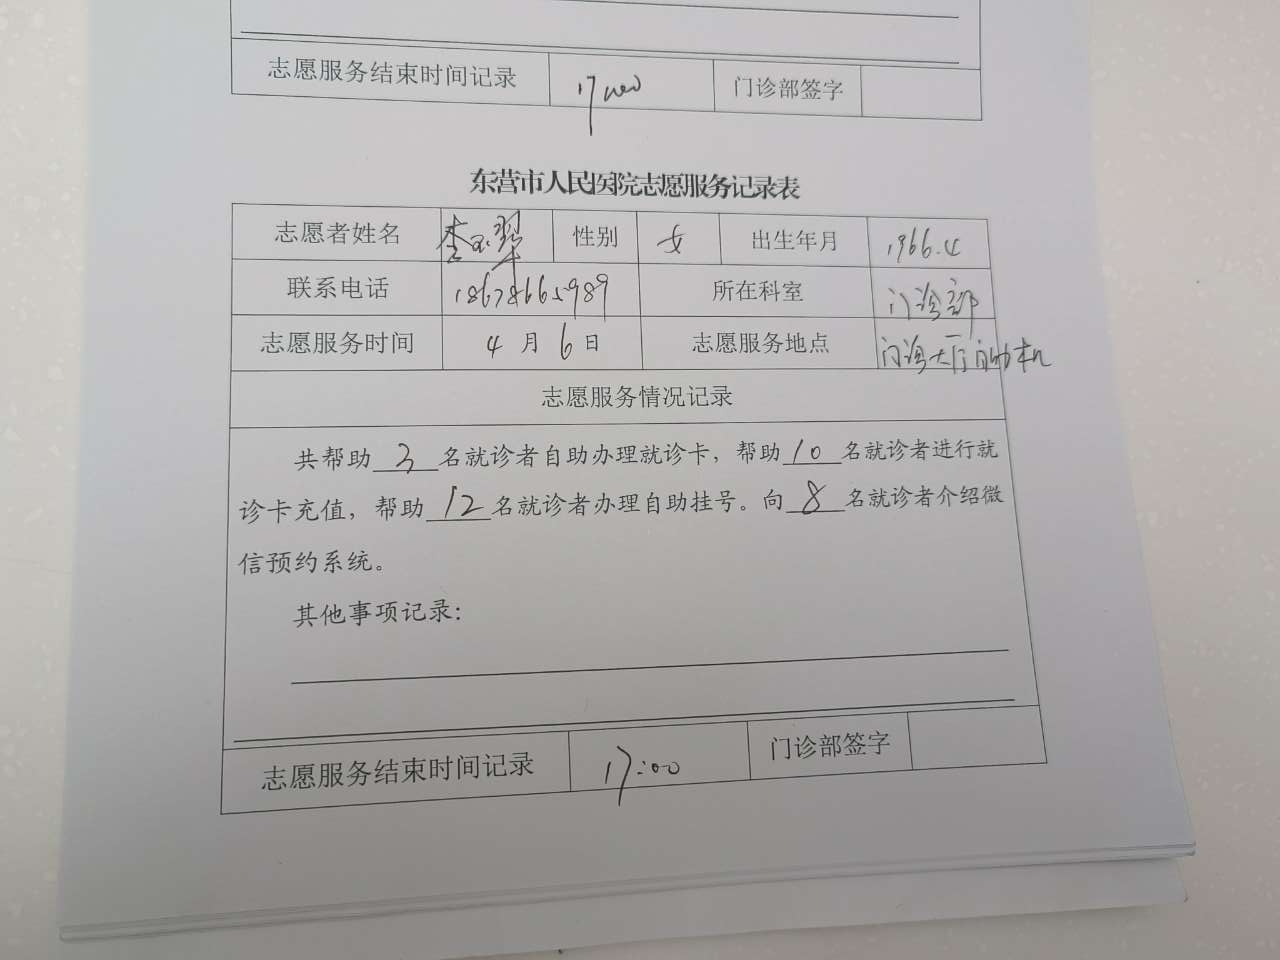 志愿服务结束时间记录 17:00 门诊部签字
东营市人民医院志愿服务记录表
志愿者姓名 李玉翠 性别 女 出生年月 1966.4
联系电话 18678665989 所在科室 门诊部
志愿服务时间 4月6日 志愿服务地点 门诊大厅自助机
志愿服务情况记录
共帮助3名就诊者自助办理就诊卡，帮助10名就诊者进行就
诊卡充值，帮助12名就诊者办理自助挂号。向8名就诊者介绍微
信预约系统。
其他事项记录：
志愿服务结束时间记录 17:00 门诊部签字